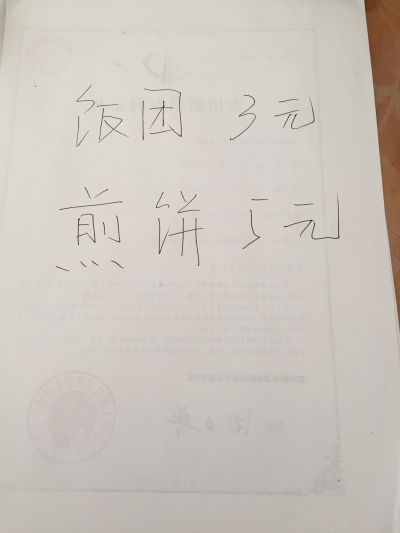 饭团 3元
煎饼 5元